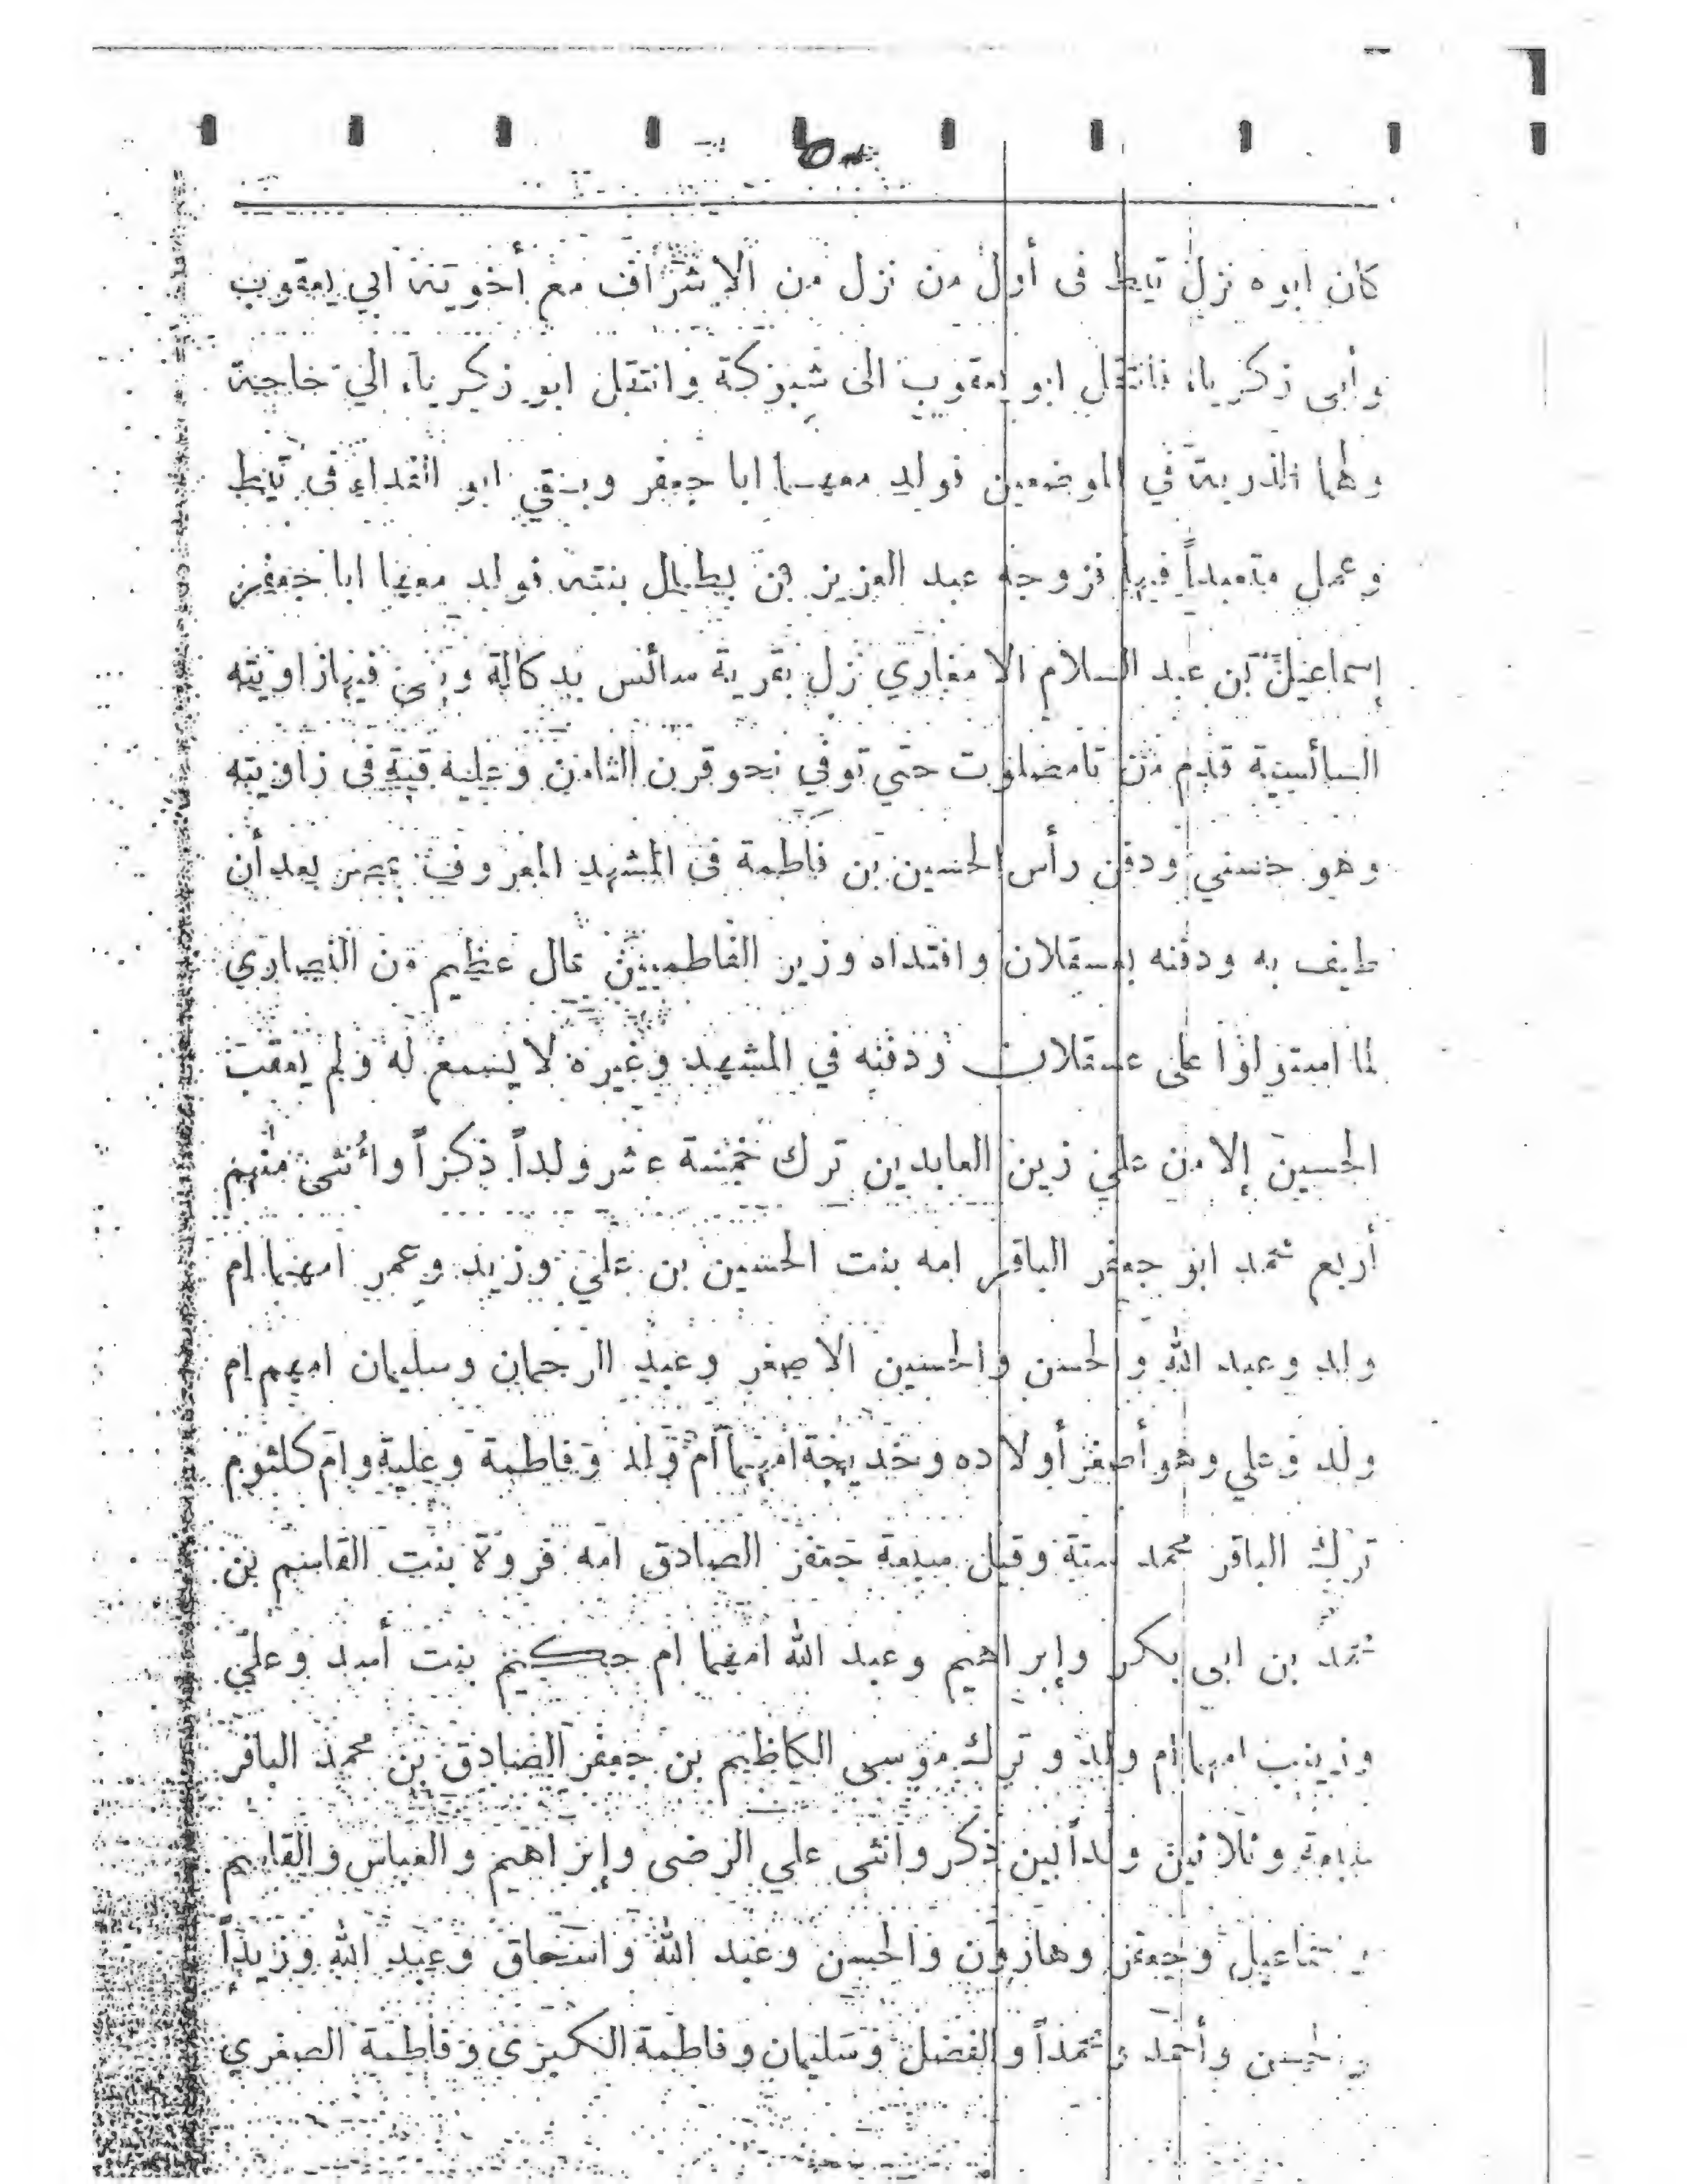 كان ابوه نزل تيط فى أول من نزل من الاشراف مع أخويه ابي يعقوب
وأبى زكرياء فانتقل ابو يعقوب الى شبوكة وانتقل ابو زكرياء الي خاجة
ولهما الذرية في الموضعين فولد معهما ابا جعفر وبقي ابو الفداء فى تيط
وعمل متعبداً فيها فزوجه عبد العزيز بن بطل بنته فولد معها ابا جعفر
إسماعيل بن عبد السلام الامغاري نزل بقرية سائس بدكالة وبنى فيها زاويته
السائسية قدم من تامصلوت حتى توفي نحو قرن الثامن وعليه قبة فى زاويته
وهو حسني ودفن رأس الحسين بن فاطمة فى المشهد المعروف بمصر بعد أن
طيف به ودفنه بعسقلان وافتداه وزير الفاطميين بمال عظيم من النصارى
لما استولوا على عسقلان ودفنه في المشهد وغيره لا يسمع له ولم يعقب
الحسين إلا من علي زين العابدين ترك خمسة عشر ولداً ذكراً وأنثى منهم
أربع محمد ابو جعفر الباقر امه بنت الحسين بن علي وزيد وعمر امهما ام
ولد وعبد الله والحسن والحسين الاصغر وعبد الرحمان وسليمان امهم ام
ولد وعلي وهو أصغر أولاده وخديجة امهما أم ولد وفاطمة وعلية وام كلثوم
ترك الباقر محمد ستة وقيل سبعة جعفر الصادق امه فروة بنت القاسم بن
محمد بن ابى بكر وإبراهيم وعبد الله امهما ام حكيم بنت أسد وعلي
وزينب امهما ام ولد وترك موسى الكاظيم بن جعفر الصادق بن محمد الباقر
سبعة وثلاثين ولداً بين ذكر وانثى علي الرضى وإبراهيم والعباس والقاسم
وإسماعيل وجعفر وهارون والحسن وعبد الله واسحاق وعبد الله وزيداً
والحسن وأحمد ومحمداً والفضل وسليمان وفاطمة الكبرى وفاطمة الصغري